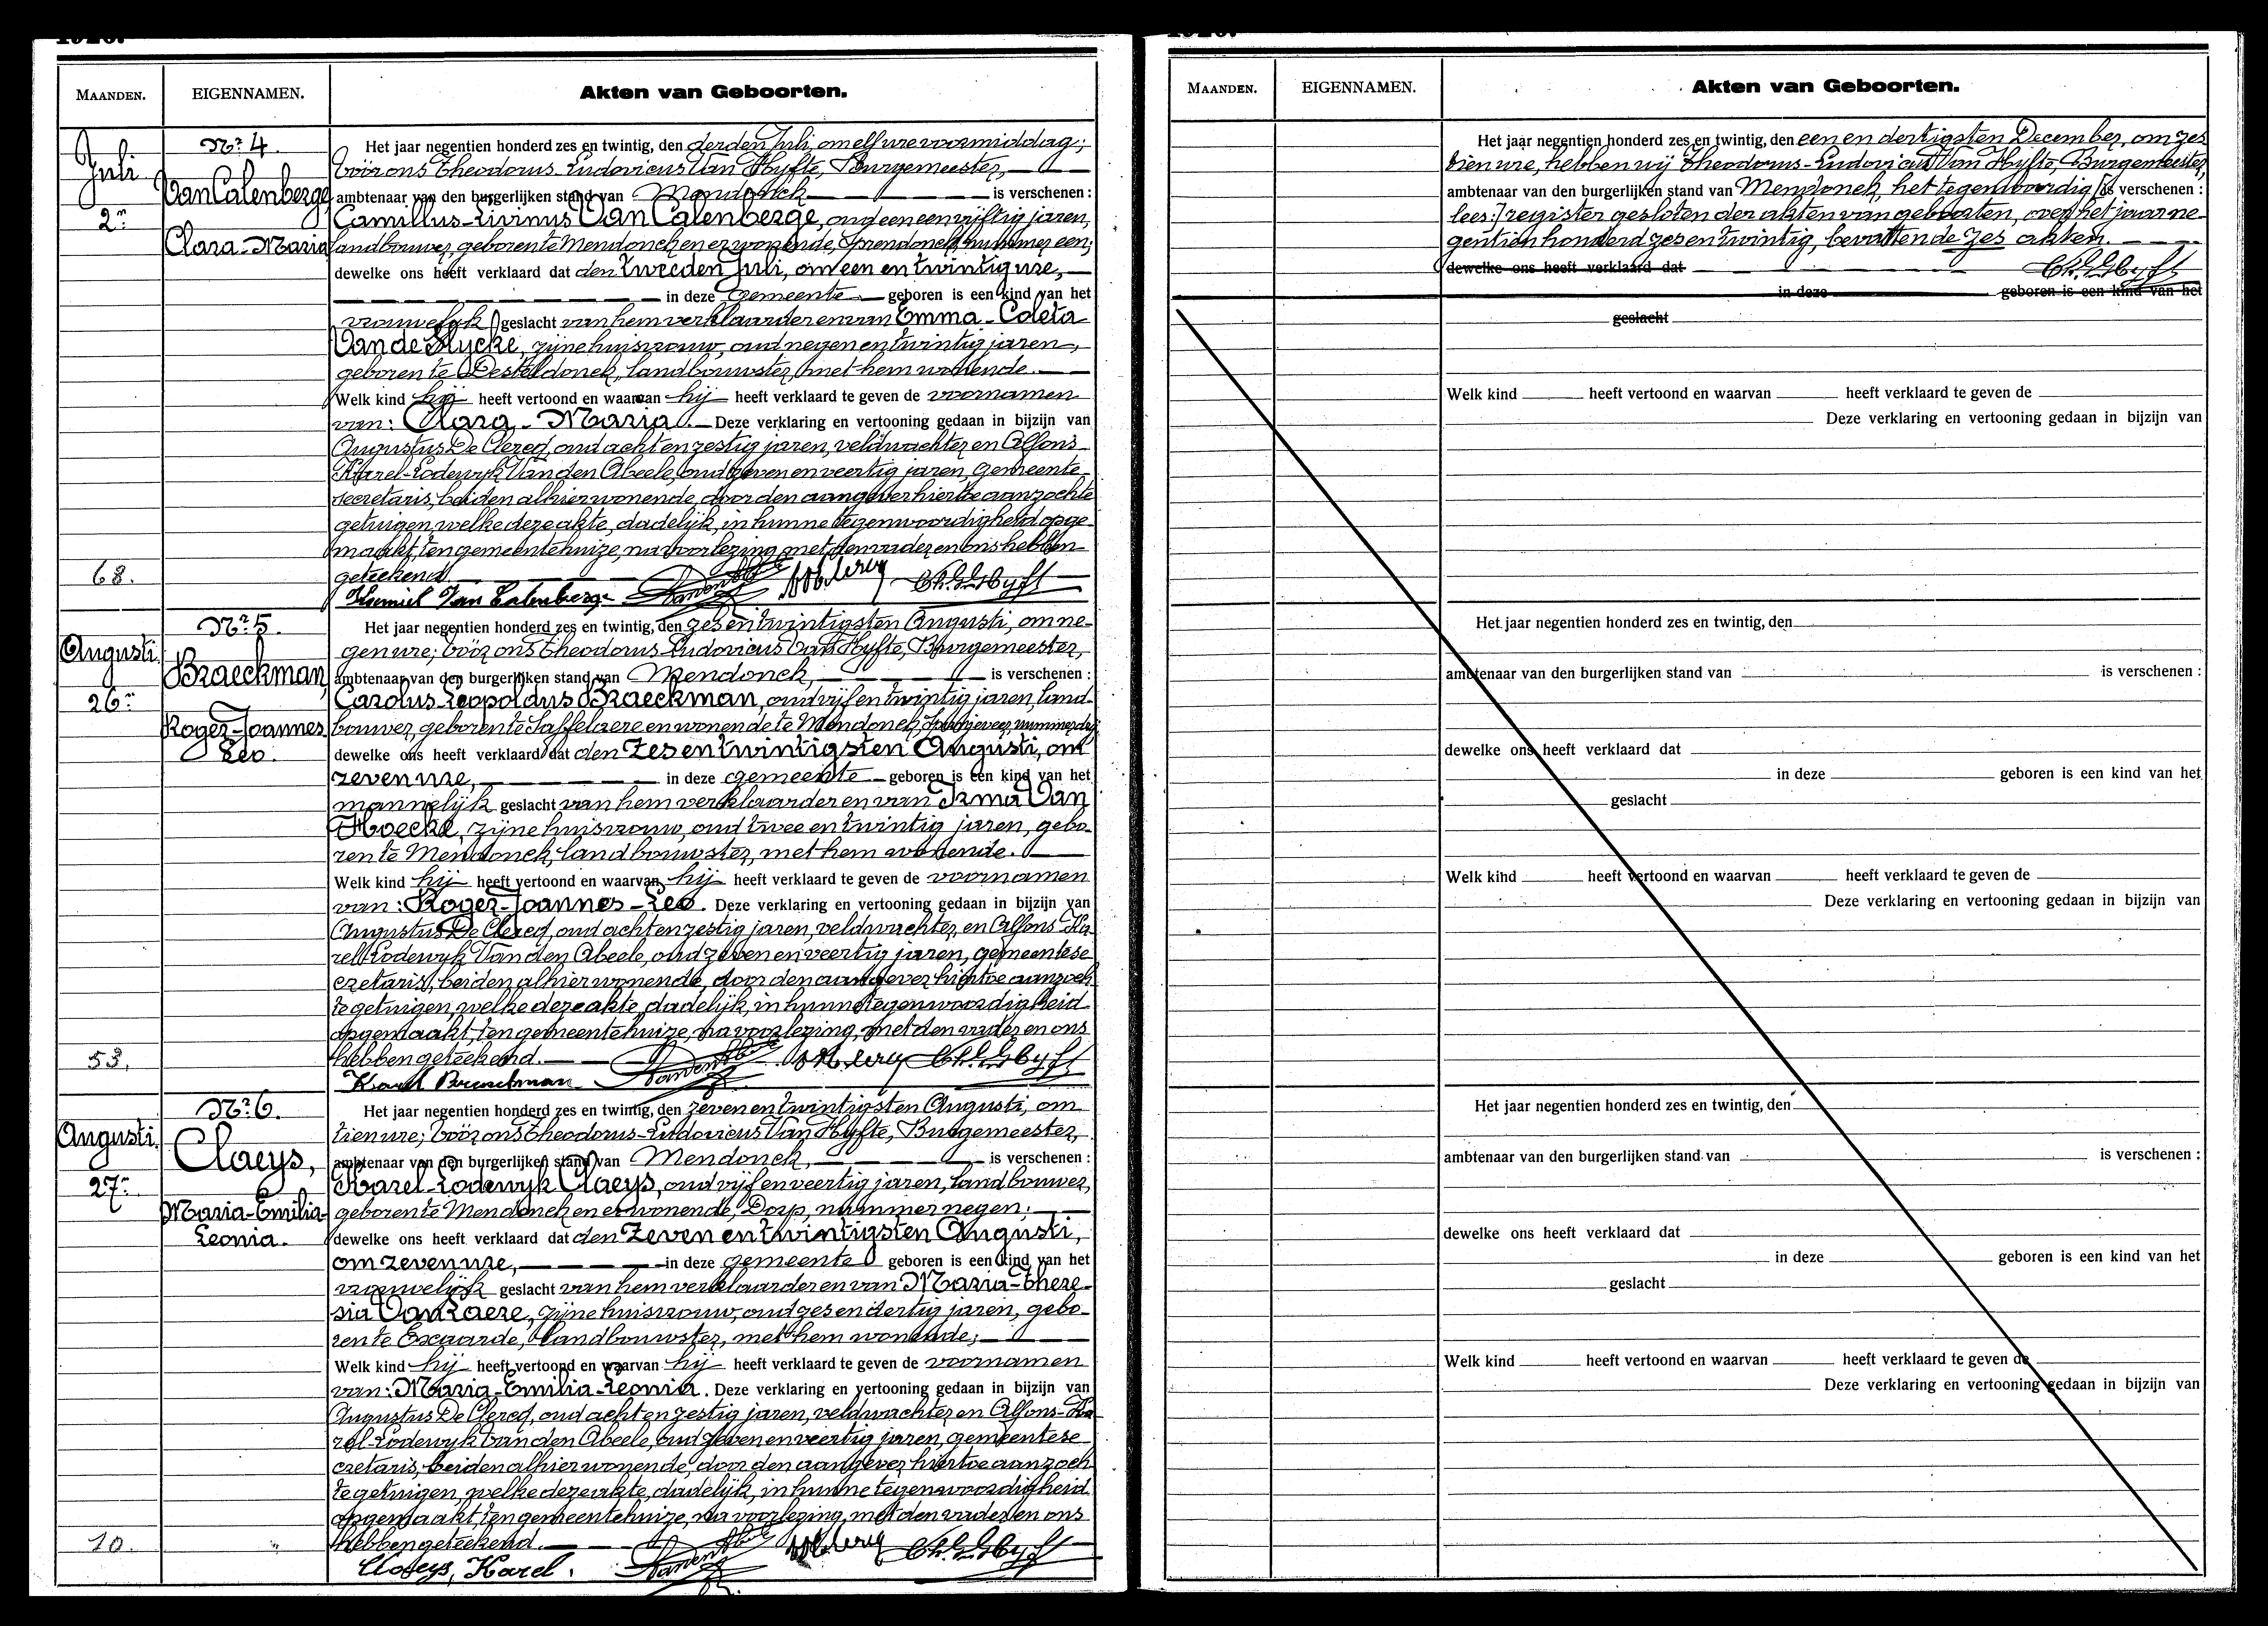 1926.
MAANDEN.
EIGENNAMEN.
Akten van Geboorten.
Juli
2n
68.
Nr 4.
Van Calenberge,
Clara-Maria
Het jaar negentien honderd zes en twintig, den derden Juli, om elf ure voormiddag;
vóór ons Theodorus-Ludovicus Van Hyfte, Burgemeester,
ambtenaar van den burgerlijken stand van Mendonck is verschenen :
Camillus-Livinus Van Calenberge, oud een en vijftig jaren,
landbouwer, geboren te Mendonck en er wonende, Spendonck nummer een;
dewelke ons heeft verklaard dat den tweeden Juli, om een en twintig ure,
in deze gemeente geboren is een kind van het
vrouwelijk geslacht van hem verklaarder en van Emma-Coleta
Van de Slycke, zijne huisvrouw, oud negen en twintig jaren,
geboren te Desteldonck, landbouwster, met hem wonende.
Welk kind hij heeft vertoond en waarvan hij heeft verklaard te geven de voornamen
van: Clara-Maria. Deze verklaring en vertooning gedaan in bijzijn van
Augustus De Clercq, oud acht en zestig jaren, veldwachter en Alfons-
Karel-Lodewyk Van den Abeele, oud zeven en veertig jaren, gemeente-
secretaris, beiden alhier wonende, door den aangever hiertoe aanzochte
getuigen, welke deze akte, dadelijk, in hunne tegenwoordigheid opge-
maakt, ten gemeentehuize, na voorlezing, met den vader en ons hebben
geteekend.
Kamiel Van Calenberge
Augusti.
26n
53.
Nr 5.
Braeckman,
Roger-Joannes
Leo.
Het jaar negentien honderd zes en twintig, den zes en twintigsten Augusti, om ne-
gen ure; vóór ons Theodorus-Ludovicus Van Hyfte, Burgemeester,
ambtenaar van den burgerlijken stand van Mendonck, is verschenen :
Carolus-Leopoldus Braeckman, oud vijf en twintig jaren, land-
bouwer, geboren te Saffelaere en wonende te Mendonck, nummer drij
dewelke ons heeft verklaard dat den zes en twintigsten Augusti, om
zeven ure, in deze gemeente geboren is een kind van het
mannelijk geslacht van hem verklaarder en van Irma Van
Hoecke, zijne huisvrouw, oud twee en twintig jaren, gebo-
ren te Mendonck, landbouwster, met hem wonende.
Welk kind hij heeft vertoond en waarvan hij heeft verklaard te geven de voornamen
van: Roger-Joannes-Leo. Deze verklaring en vertooning gedaan in bijzijn van
Augustus De Clercq, oud acht en zestig jaren, veldwachter, en Alfons-Ka-
rel-Lodewyk Van den Abeele, oud zeven en veertig jaren, gemeentese-
cretaris, beiden alhier wonende, door den aangever hiertoe aanzoch-
te getuigen, welke deze akte, dadelijk, in hunne tegenwoordigheid
opgemaakt, ten gemeentehuize, na voorlezing, met den vader en ons
hebben geteekend.
Karel Braeckman
Augusti.
27n
10.
Nr 6.
Claeys,
Maria-Emilia-
Leonia.
Het jaar negentien honderd zes en twintig, den zeven en twintigsten Augusti, om
tien ure; vóór ons Theodorus-Ludovicus Van Hyfte, Burgemeester,
ambtenaar van den burgerlijken stand van Mendonck, is verschenen :
Karel-Lodewyk Claeys, oud vijf en veertig jaren, landbouwer,
geboren te Mendonck en er wonende, Dorp, nummer negen;
dewelke ons heeft verklaard dat den zeven en twintigsten Augusti,
om zeven ure, in deze gemeente geboren is een kind van het
vrouwelijk geslacht van hem verklaarder en van Maria-There-
sia Van Laere, zijne huisvrouw, oud zes en dertig jaren, gebo-
ren te Exaarde, landbouwster, met hem wonende;
Welk kind hij heeft vertoond en waarvan hij heeft verklaard te geven de voornamen
van: Maria-Emilia-Leonia. Deze verklaring en vertooning gedaan in bijzijn van
Augustus De Clercq, oud acht en zestig jaren, veldwachter en Alfons-Ka-
rel-Lodewyk Van den Abeele, oud zeven en veertig jaren, gemeentese-
cretaris, beiden alhier wonende, door den aangever hiertoe aanzoch-
te getuigen, welke deze akte, dadelijk, in hunne tegenwoordigheid
opgemaakt, ten gemeentehuize, na voorlezing, met den vader en ons
hebben geteekend.
Claeys, Karel.
1926.
MAANDEN.
EIGENNAMEN.
Akten van Geboorten.
Het jaar negentien honderd zes en twintig, den een en dertigsten December, om zes
tien ure, hebben wij Theodorus-Ludovicus Van Hyfte, Burgemeester,
ambtenaar van den burgerlijken stand van Mendonck, het tegenwoordig [is verschenen :
lees:] register gesloten der akten van geboorten, over het jaar ne-
gentien honderd zes en twintig, bevattende zes akten.
dewelke ons heeft verklaard dat
in deze geboren is een kind van het
geslacht
Welk kind heeft vertoond en waarvan heeft verklaard te geven de
Deze verklaring en vertooning gedaan in bijzijn van
Het jaar negentien honderd zes en twintig, den
ambtenaar van den burgerlijken stand van is verschenen :
dewelke ons heeft verklaard dat
in deze geboren is een kind van het
geslacht
Welk kind heeft vertoond en waarvan heeft verklaard te geven de
Deze verklaring en vertooning gedaan in bijzijn van
Het jaar negentien honderd zes en twintig, den
ambtenaar van den burgerlijken stand van is verschenen :
dewelke ons heeft verklaard dat
in deze geboren is een kind van het
geslacht
Welk kind heeft vertoond en waarvan heeft verklaard te geven de
Deze verklaring en vertooning gedaan in bijzijn van